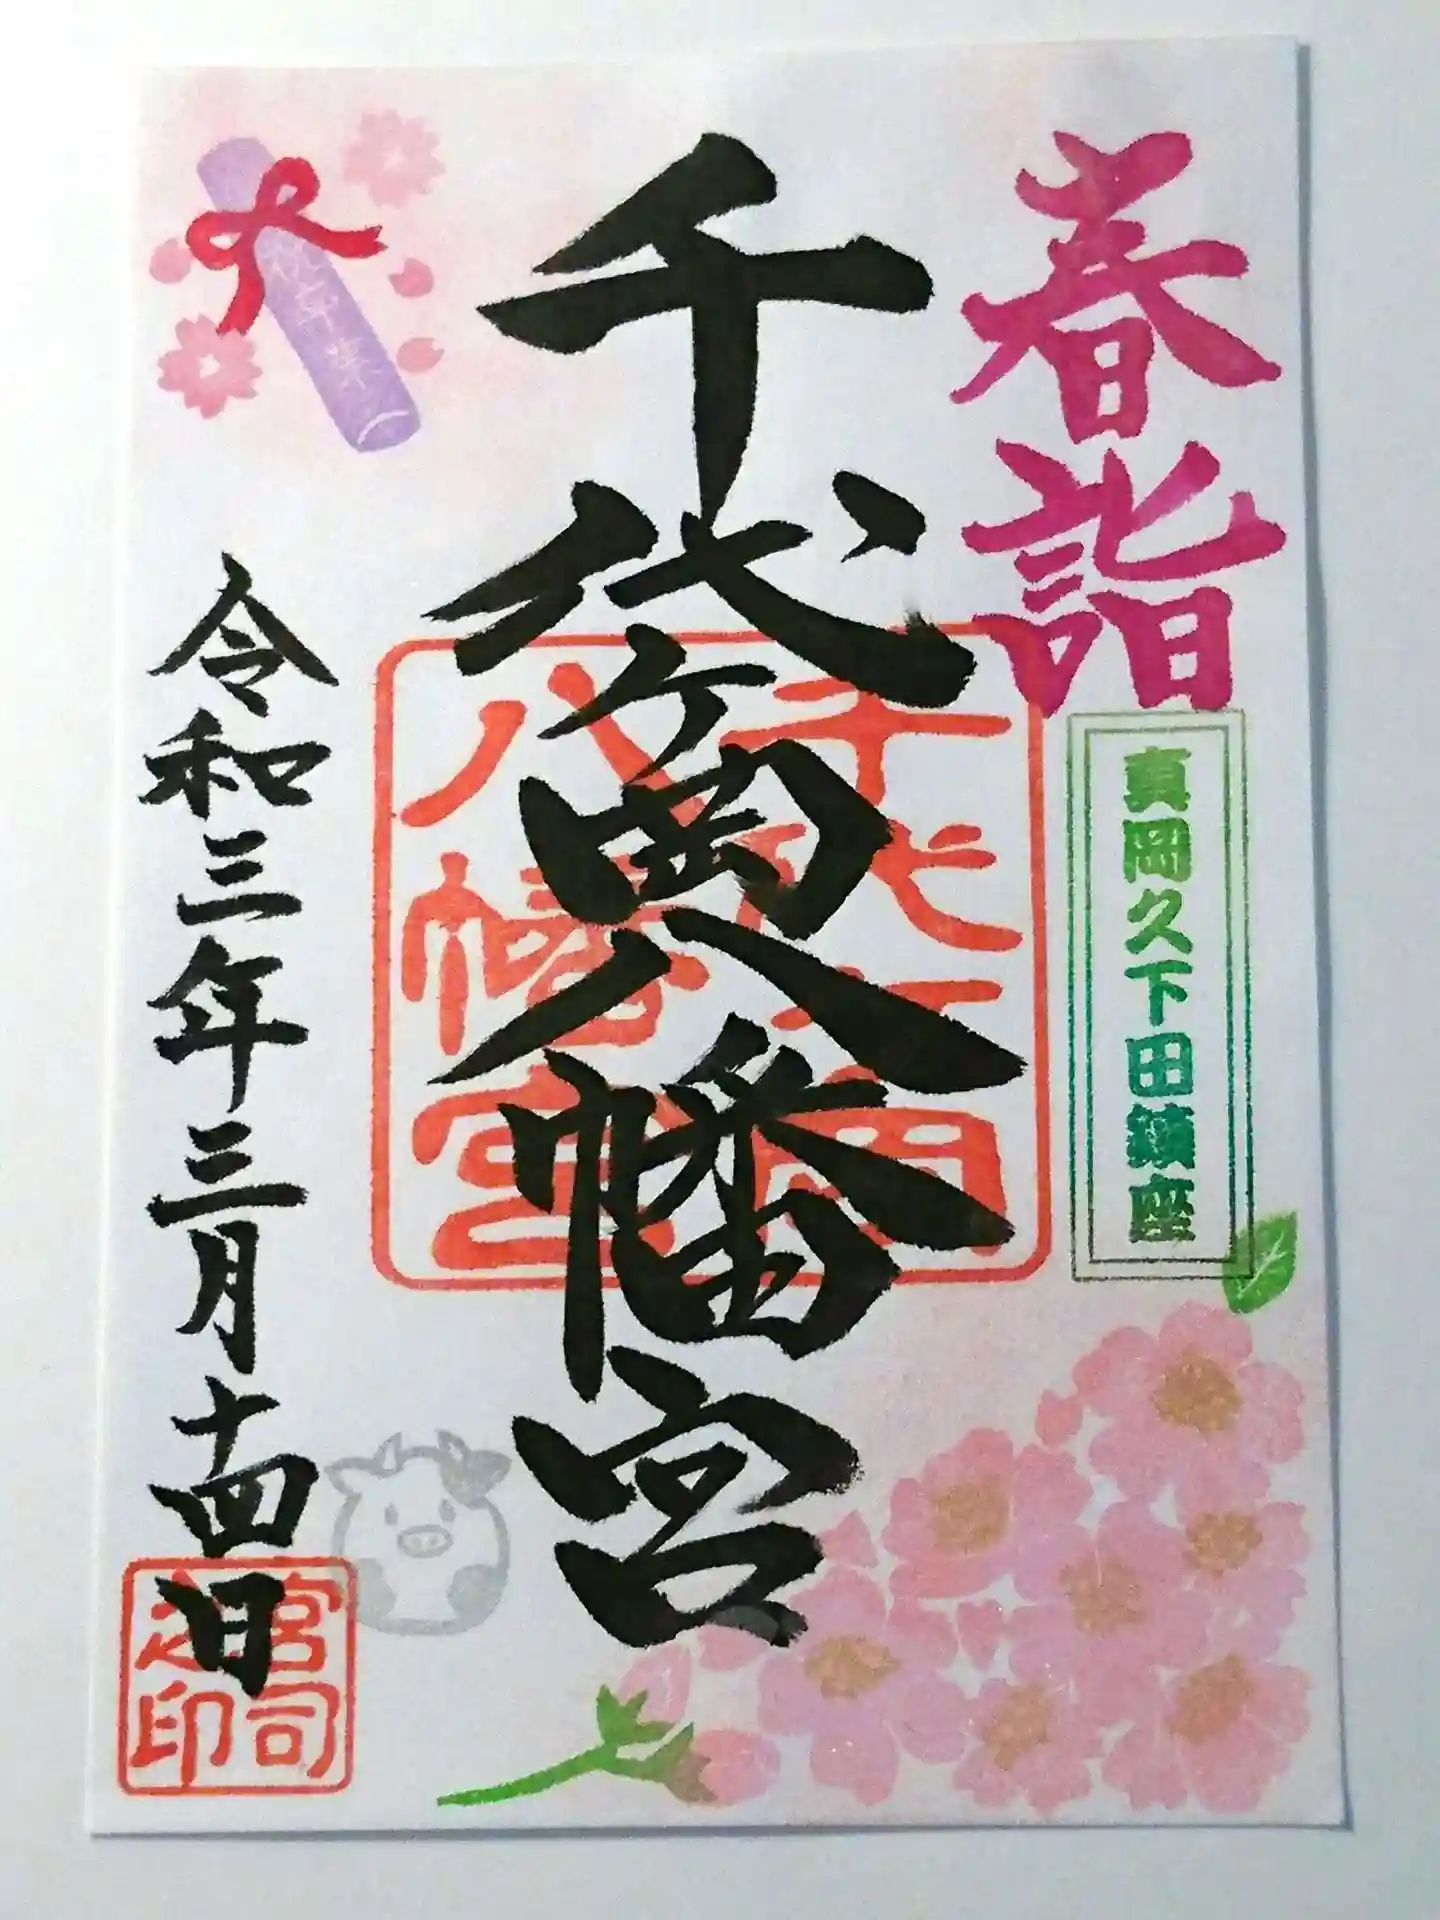 春詣
真岡久下田鎮座
千代ヶ岡八幡宮
千代ヶ岡
八幡宮
祝卒業
令和三年三月十四日
宮司
之印